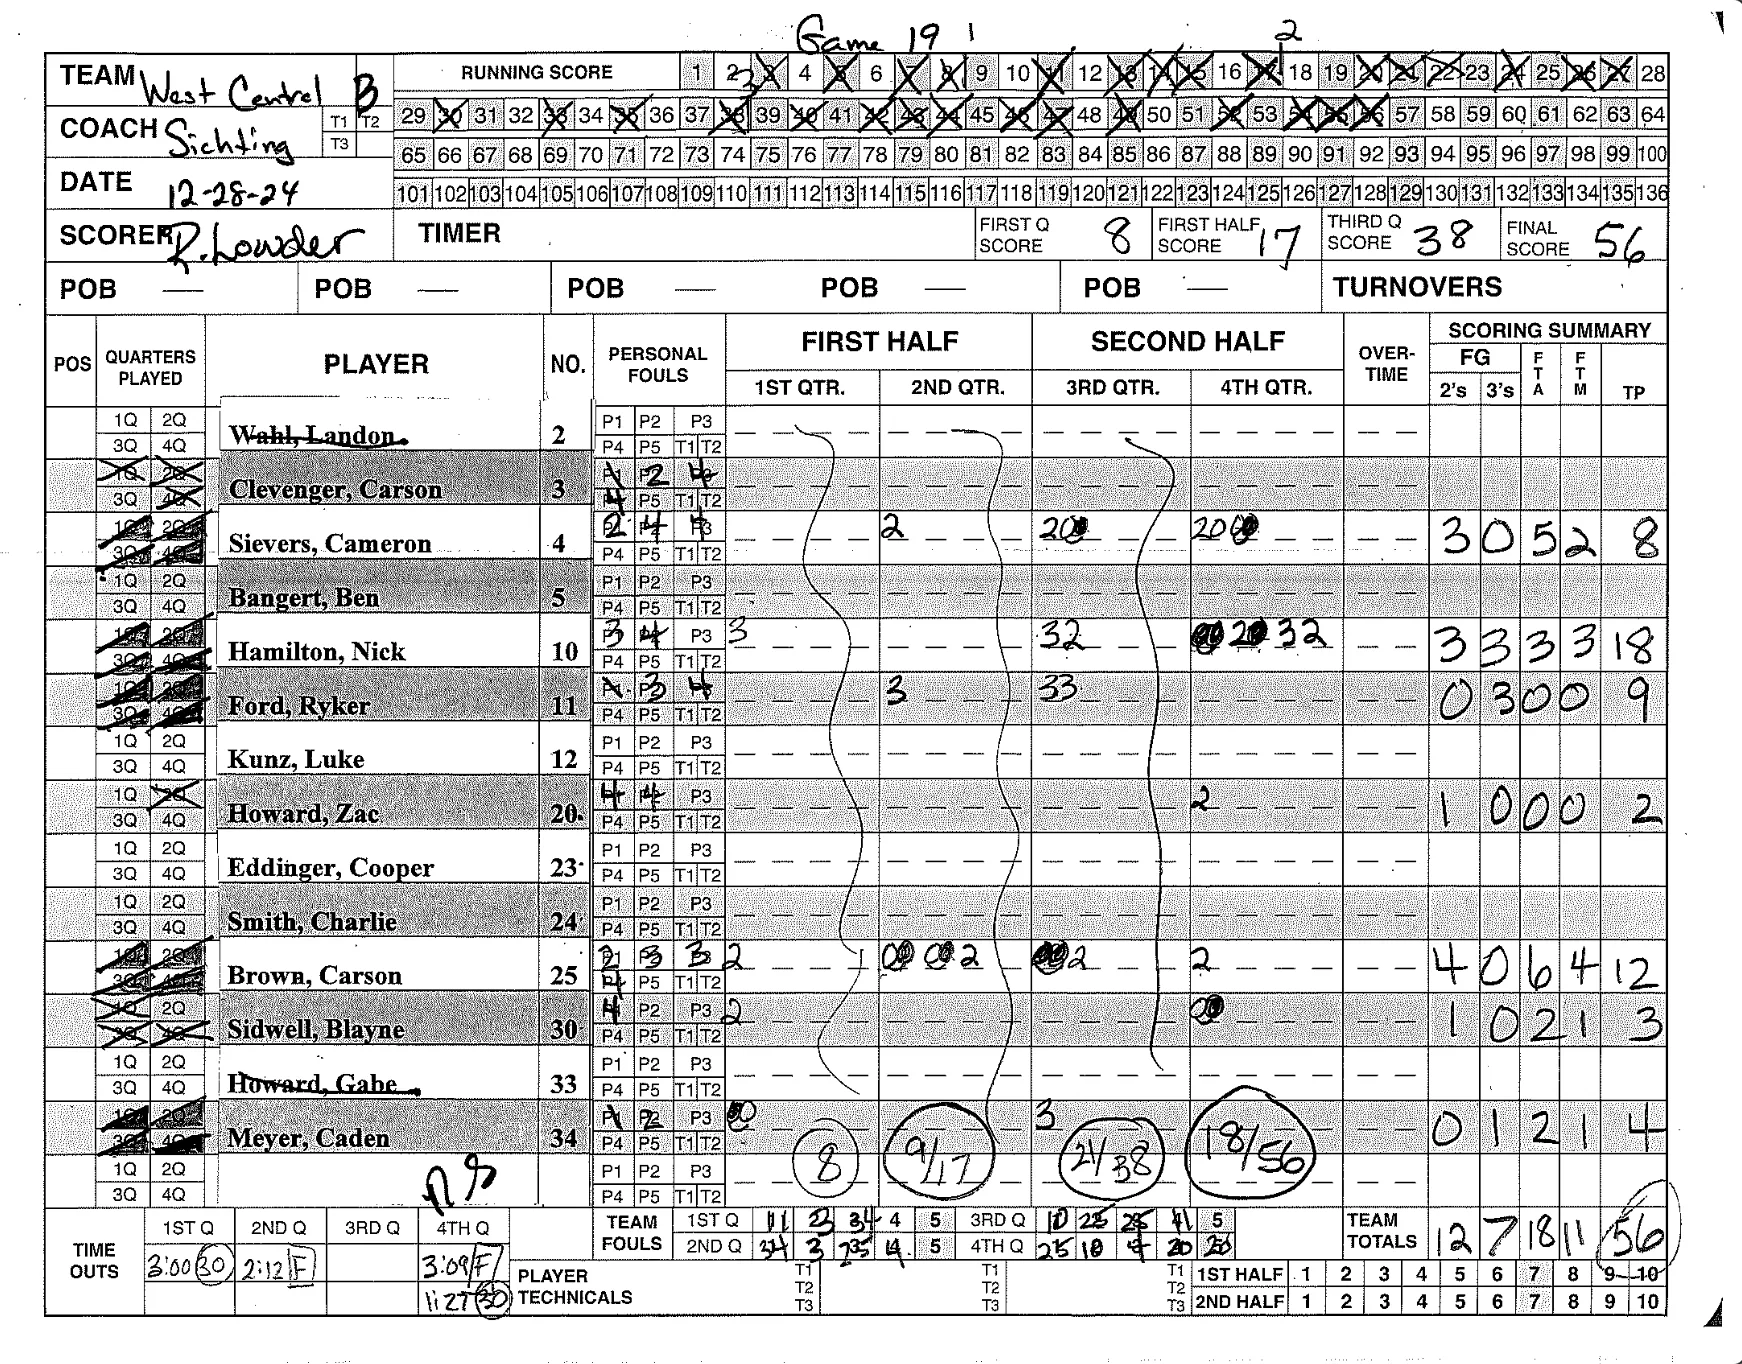 Game 19 1 2
TEAM West Central B
RUNNING SCORE 1 2 3 4 5 6 7 8 9 10 11 12 13 14 15 16 17 18 19 20 21 22 23 24 25 26 27 28
COACH Sichting T1 T2 T3
29 30 31 32 33 34 35 36 37 38 39 40 41 42 43 44 45 46 47 48 49 50 51 52 53 54 55 56 57 58 59 60 61 62 63 64
65 66 67 68 69 70 71 72 73 74 75 76 77 78 79 80 81 82 83 84 85 86 87 88 89 90 91 92 93 94 95 96 97 98 99 100
DATE 12-28-24
101 102 103 104 105 106 107 108 109 110 111 112 113 114 115 116 117 118 119 120 121 122 123 124 125 126 127 128 129 130 131 132 133 134 135 136
SCORER R. Lowder TIMER FIRST Q SCORE 8 FIRST HALF SCORE 17 THIRD Q SCORE 38 FINAL SCORE 56
POB — POB — POB — POB — POB — TURNOVERS
POS QUARTERS PLAYED PLAYER NO. PERSONAL FOULS FIRST HALF SECOND HALF OVER-TIME SCORING SUMMARY
1ST QTR. 2ND QTR. 3RD QTR. 4TH QTR. FG 2's 3's FTA FTM TP
1Q 2Q Wahl, Landon 2 P1 P2 P3
3Q 4Q P4 P5 T1 T2
1Q 2Q Clevenger, Carson 3 1 2 4
3Q 4Q 4 P5 T1 T2
1Q 2Q Sievers, Cameron 4 2 4 4 2 20 20 3 0 5 2 8
3Q 4Q P4 P5 T1 T2
1Q 2Q Bangert, Ben 5 P1 P2 P3
3Q 4Q P4 P5 T1 T2
1Q 2Q Hamilton, Nick 10 3 4 P3 3 32 2 32 3 3 3 3 18
3Q 4Q P4 P5 T1 T2
1Q 2Q Ford, Ryker 11 1 3 4 3 33 0 3 0 0 9
3Q 4Q P4 P5 T1 T2
1Q 2Q Kunz, Luke 12 P1 P2 P3
3Q 4Q P4 P5 T1 T2
1Q 2Q Howard, Zac 20 4 4 P3 2 1 0 0 0 2
3Q 4Q P4 P5 T1 T2
1Q 2Q Eddinger, Cooper 23 P1 P2 P3
3Q 4Q P4 P5 T1 T2
1Q 2Q Smith, Charlie 24 P1 P2 P3
3Q 4Q P4 P5 T1 T2
1Q 2Q Brown, Carson 25 2 3 3 2 2 2 2 4 0 6 4 12
3Q 4Q 4 P5 T1 T2
1Q 2Q Sidwell, Blayne 30 4 P2 P3 2 1 0 2 1 3
3Q 4Q P4 P5 T1 T2
1Q 2Q Howard, Gabe 33 P1 P2 P3
3Q 4Q P4 P5 T1 T2
1Q 2Q Meyer, Caden 34 1 2 P3 3 0 1 2 1 4
3Q 4Q P4 P5 T1 T2
8 9/17 21/38 18/56
1Q 2Q P1 P2 P3
3Q 4Q P4 P5 T1 T2
TIME OUTS 1ST Q 2ND Q 3RD Q 4TH Q
3:00 30 2:12 F 3:09 F
1:27 30
TEAM FOULS 1ST Q 11 34 4 5 3RD Q 10 25 25 11 5
2ND Q 34 3 4 5 4TH Q 25 10 4 20
TEAM TOTALS 12 7 18 11 56
PLAYER TECHNICALS T1 T2 T3 T1 T2 T3 T1 T2 T3
1ST HALF 1 2 3 4 5 6 7 8 9 10
2ND HALF 1 2 3 4 5 6 7 8 9 10